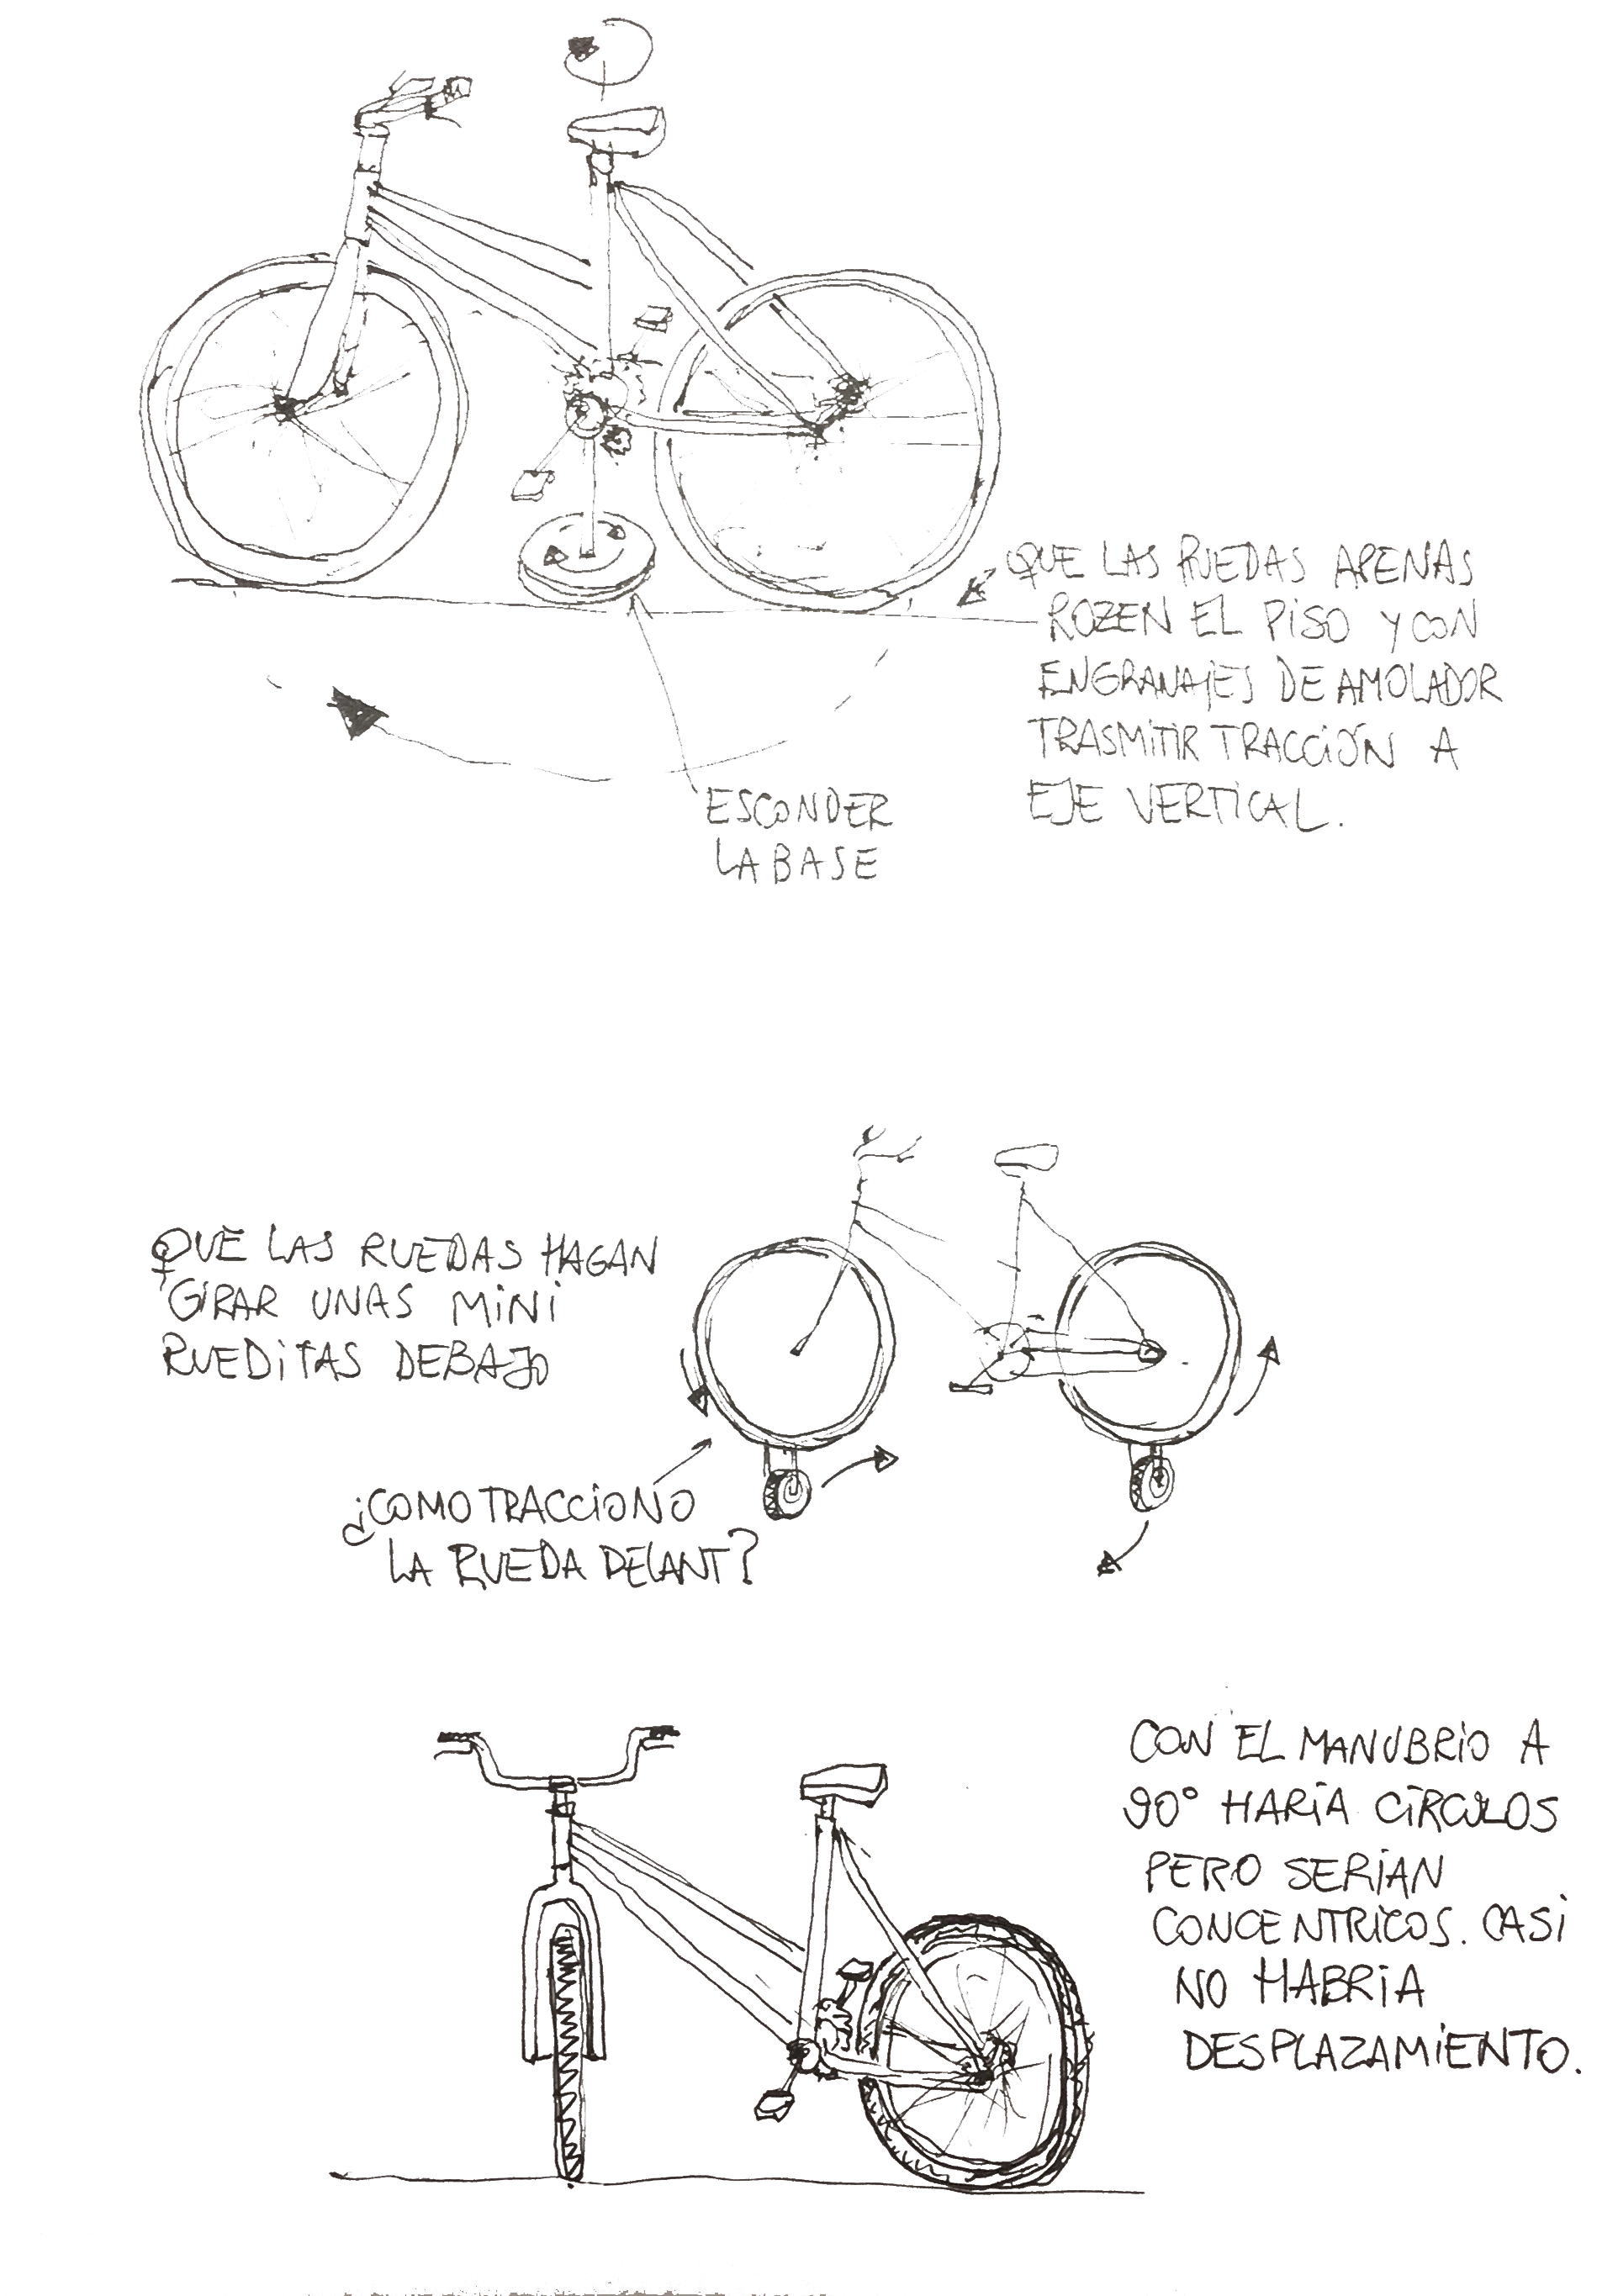 QUE LAS RUEDAS APENAS
ROZEN EL PISO Y CON
ENGRANAJES DE AMOLADOR
TRASMITIR TRACCIÓN A
EJE VERTICAL.
ESCONDER
LA BASE
QUE LAS RUEDAS HAGAN
GIRAR UNAS MINI
RUEDITAS DEBAJO
¿COMO TRACCIONO
LA RUEDA DELANT?
CON EL MANUBRIO A
90° HARIA CÍRCULOS
PERO SERIAN
CONCENTRICOS. CASI
NO HABRIA
DESPLAZAMIENTO.